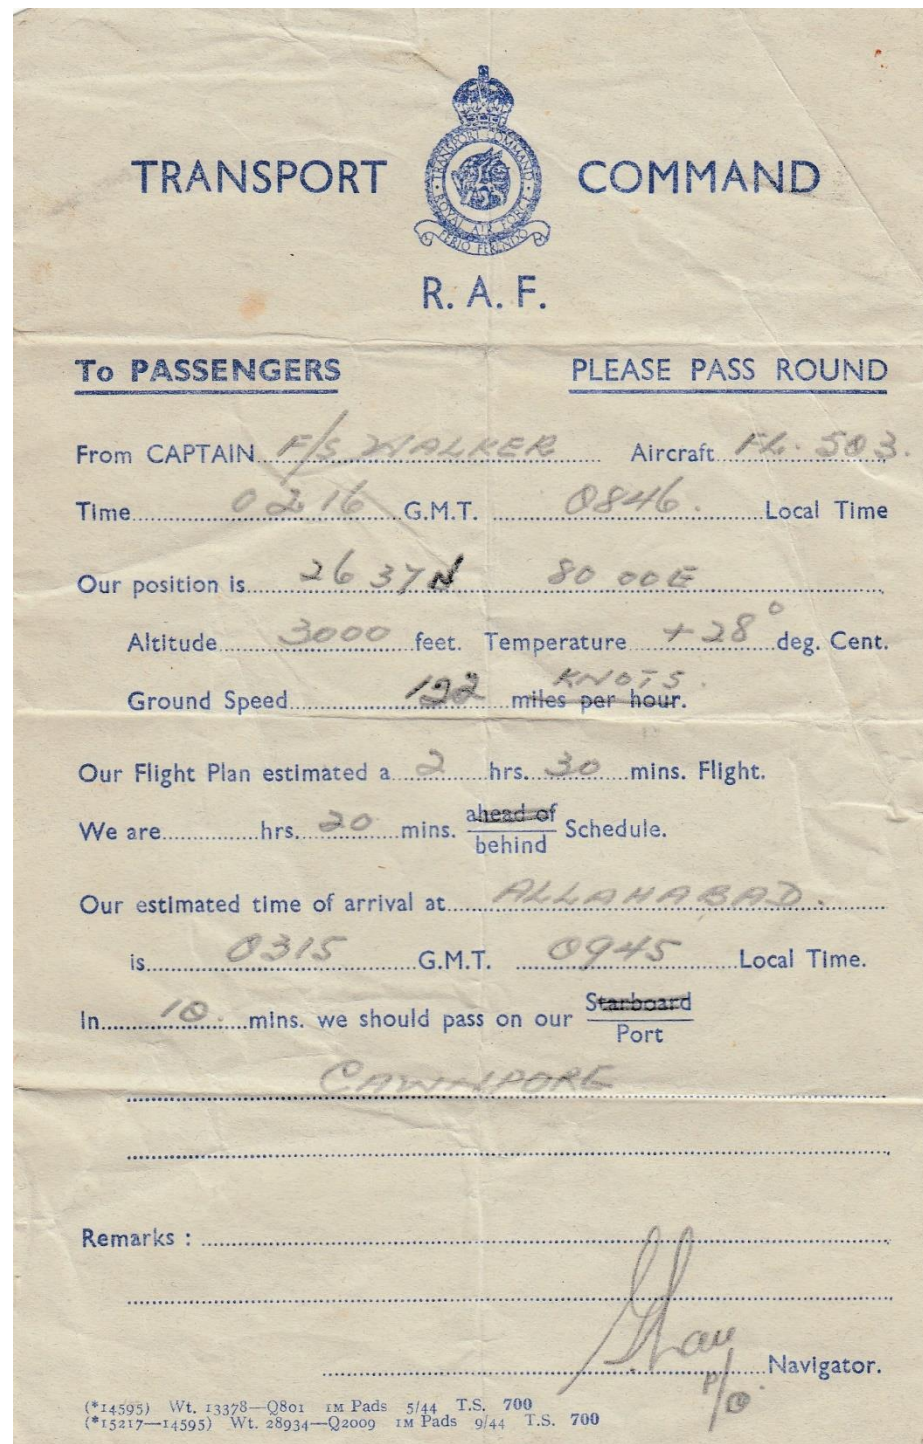 TRANSPORT COMMAND
TRANSPORT COMMAND
ROYAL AIR FORCE
FERIO FERENDO
R. A. F.
To PASSENGERS PLEASE PASS ROUND
From CAPTAIN F/S WALKER Aircraft FL. 503.
Time 0216 G.M.T. 0846. Local Time
Our position is 26 37N 80 00E
Altitude 3000 feet. Temperature +28° deg. Cent.
KNOTS.
Ground Speed 122 miles per hour.
Our Flight Plan estimated a 2 hrs. 30 mins. Flight.
ahead of
We are hrs. 20 mins. behind Schedule.
Our estimated time of arrival at ALLAHABAD.
is 0315 G.M.T. 0945 Local Time.
Starboard
In 10. mins. we should pass on our Port
CAWNPORE
Remarks :
Navigator.
P/O.
(*14595) Wt. 13378—Q801 1M Pads 5/44 T.S. 700
(*15217—14595) Wt. 28934—Q2009 1M Pads 9/44 T.S. 700